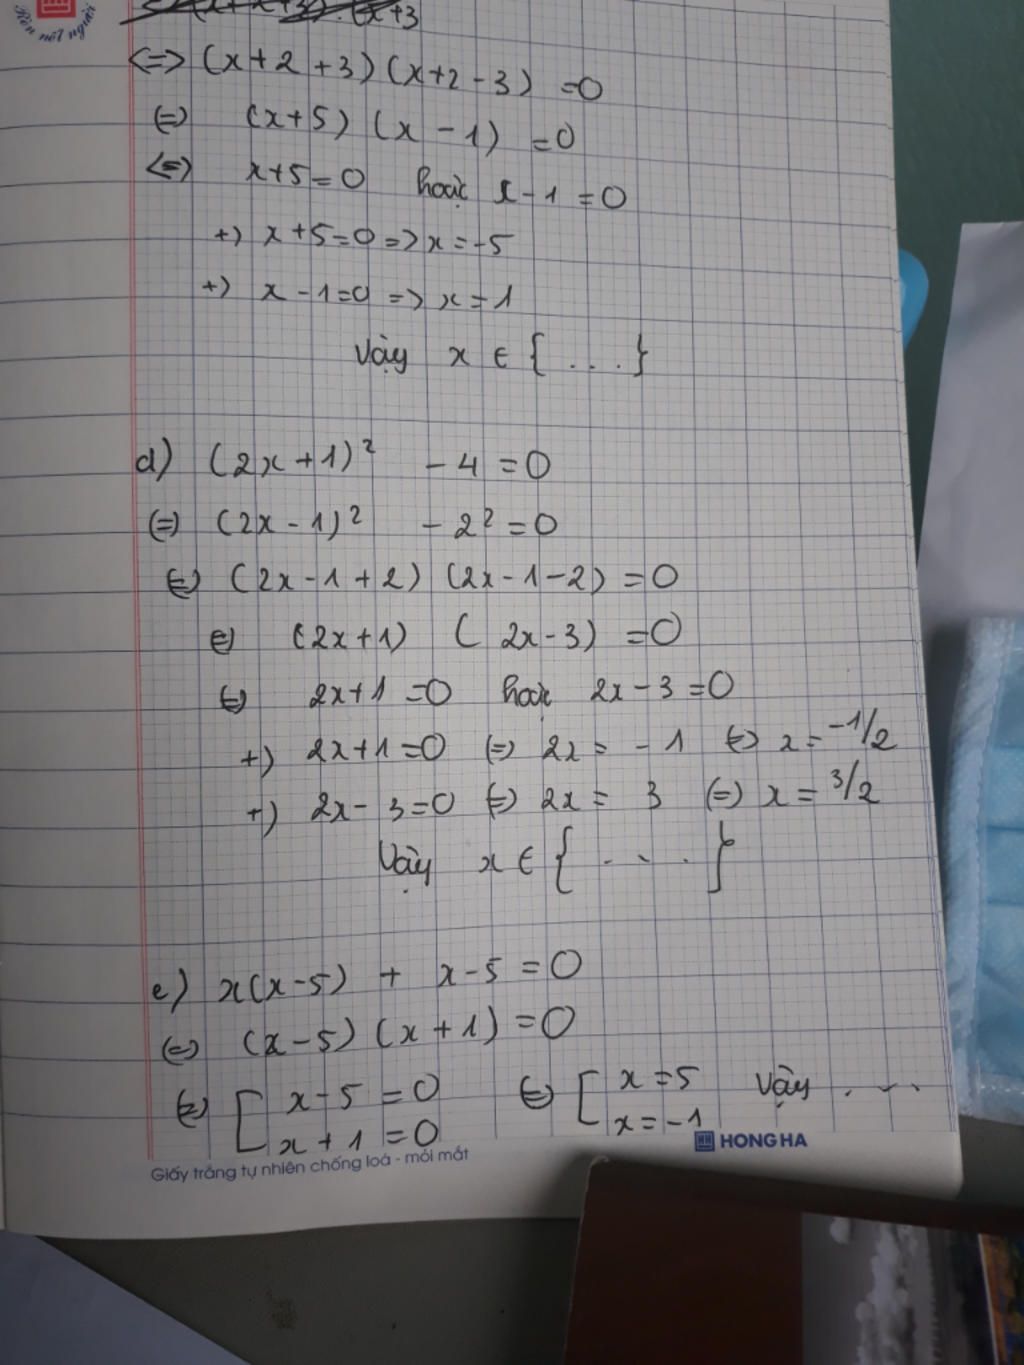 Rèn nét người
(x+3
<=> (x+2+3)(x+2-3) =0
(=) (x+5) (x-1) =0
<=> x+5=0 hoặc x-1=0
+) x+5=0 => x=-5
+) x-1=0 => x=1
Vậy x ∈ { ... }
d) (2x+1)² - 4 =0
(=) (2x-1)² - 2² =0
(=) (2x-1+2) (2x-1-2) =0
(=) (2x+1) (2x-3) =0
(=) 2x+1 =0 hoặc 2x-3=0
+) 2x+1=0 (=) 2x = -1 (=) x = -1/2
+) 2x-3=0 (=) 2x = 3 (=) x = 3/2
Vậy x ∈ { ... }
e) x(x-5) + x-5 =0
(=) (x-5)(x+1) =0
(=) [ x-5 =0 (=) [ x=5 Vậy ...
x+1 =0 x=-1
HONG HA
Giấy trắng tự nhiên chống loá - mỏi mắt